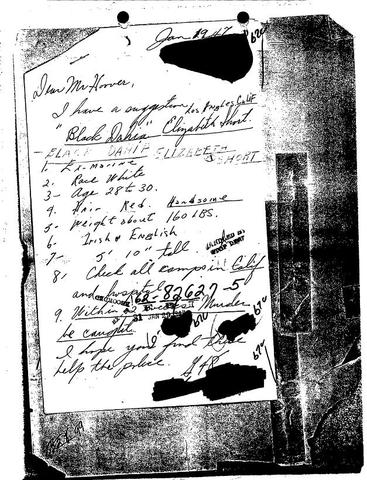 Jan 19 47
Dear Mr Hoover,
I have a suggestion Los Angeles Calif
"Black Dahlia" Elizabeth Short.
BLACK DAHLIA ELIZEBETH SHORT
1. Ex-Marine
2. Race White
3- Age 28 to 30.
4. Hair Red. Handsome
5. Weight about 160 LBS.
6. Irish & English
7- 5' 10" tall
8, Check all camps in Calif
and hospitals
62-82627-5
9. Within Murder
be caught.
I hope you find
help the police.